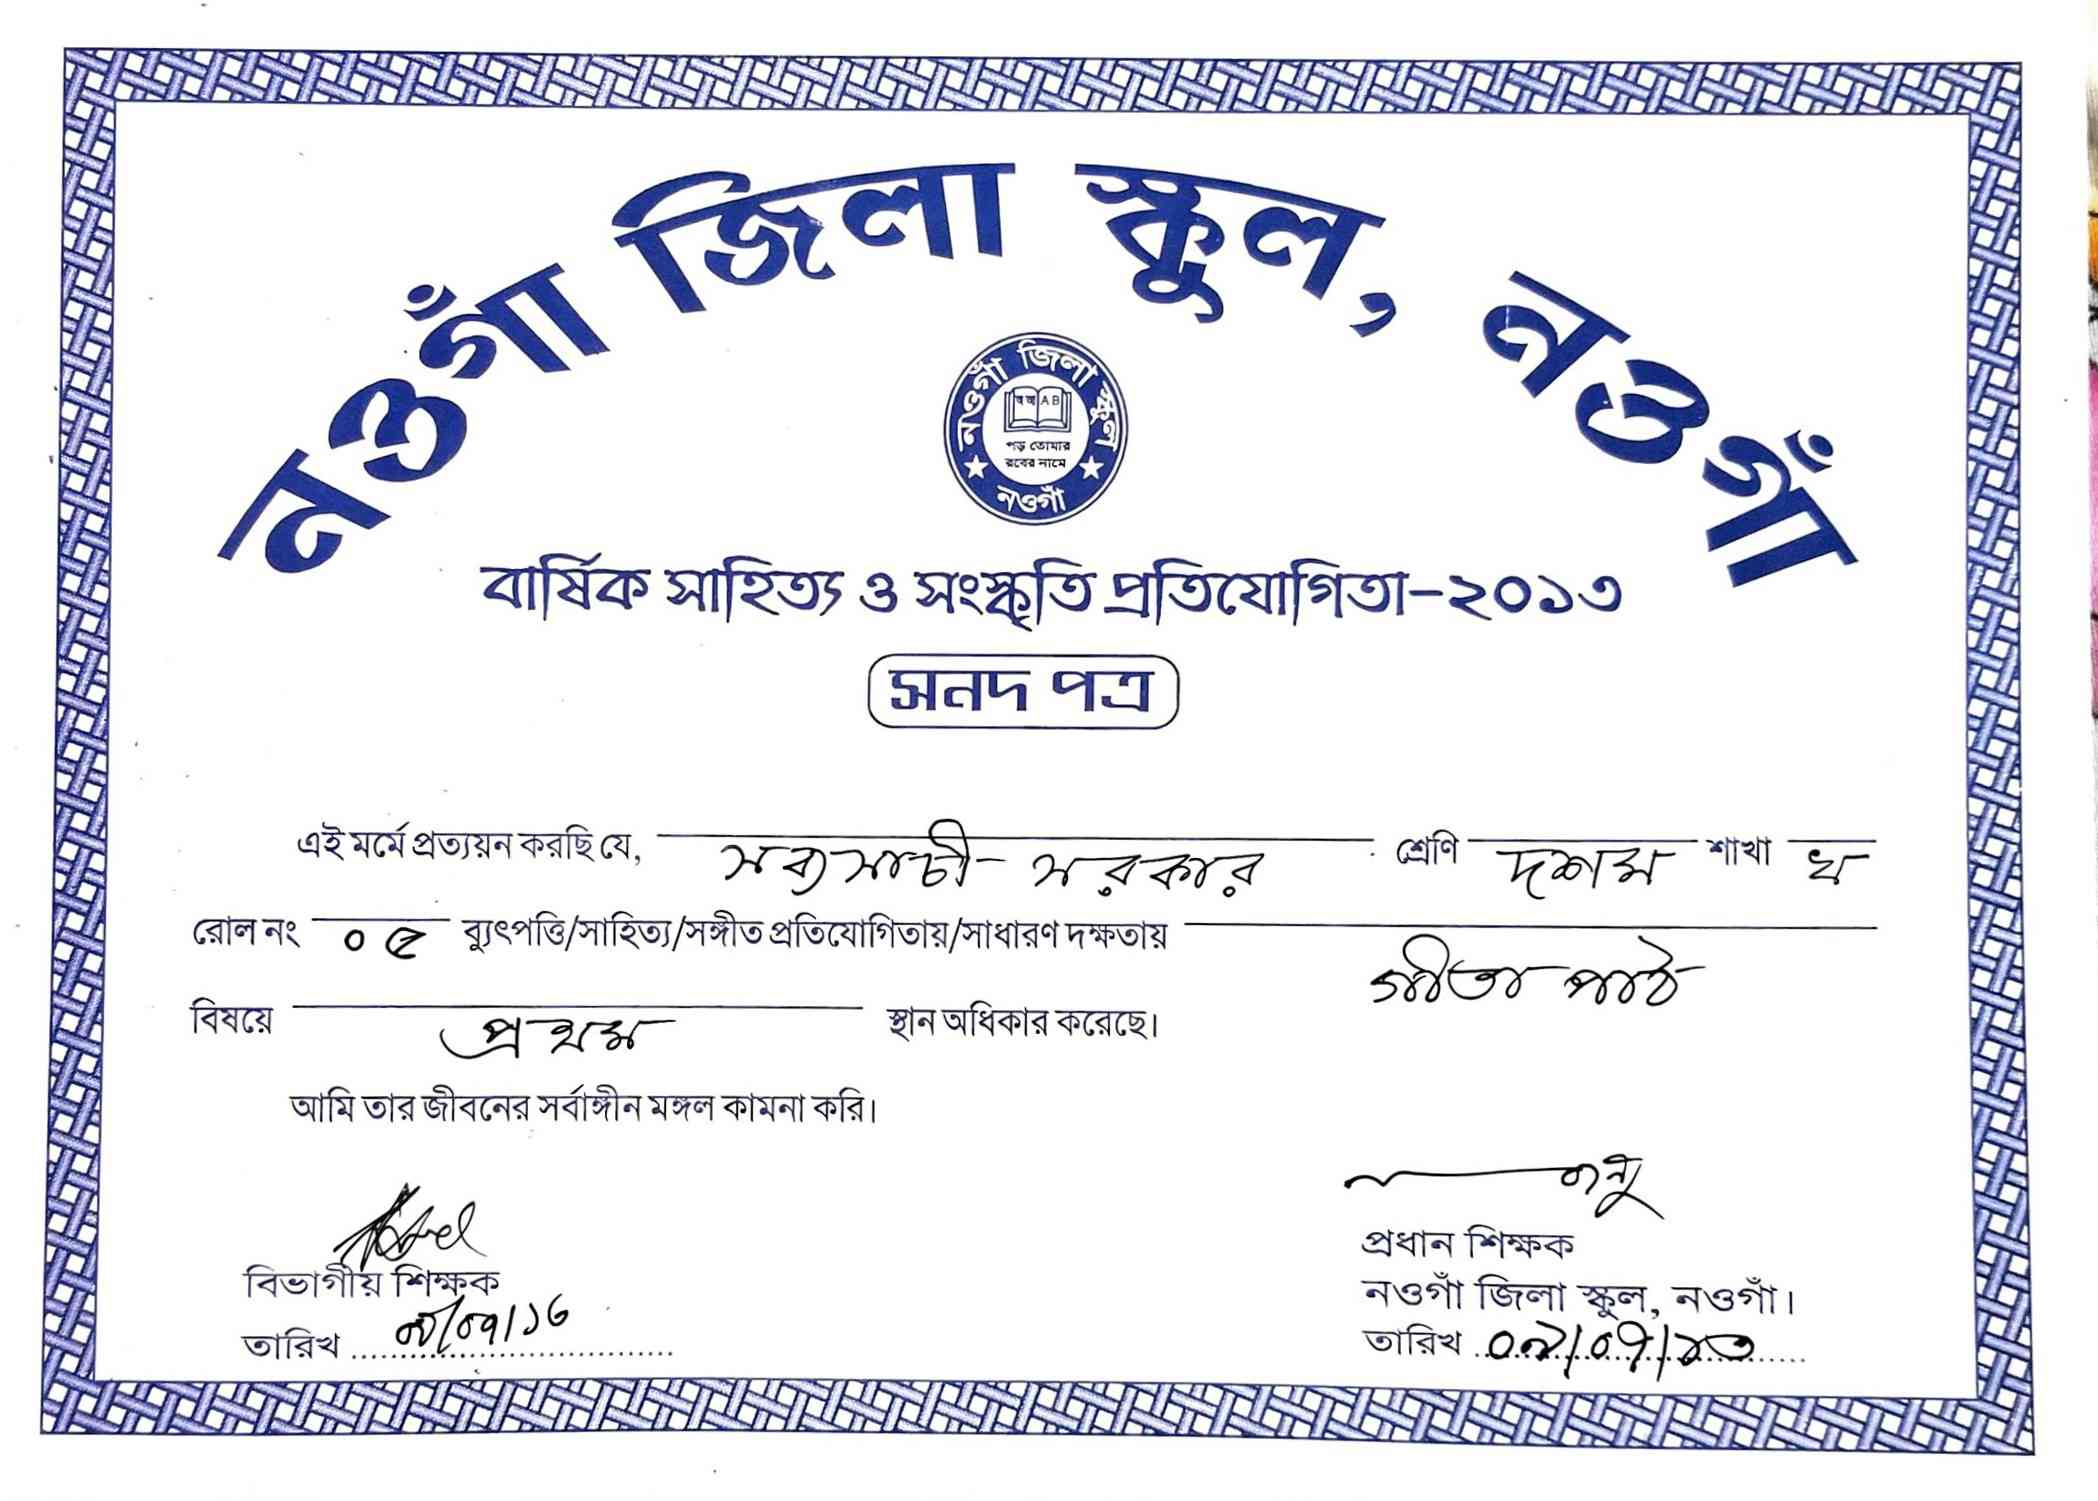 নওগাঁ জিলা স্কুল, নওগাঁ
নওগাঁ জিলা স্কুল
অ আ A B
পড় তোমার
রবের নামে
নওগাঁ
বার্ষিক সাহিত্য ও সংস্কৃতি প্রতিযোগিতা-২০১৩
সনদ পত্র
এই মর্মে প্রত্যয়ন করছি যে, সব্যসাচী সরকার শ্রেণি দশম শাখা খ
রোল নং ০৫ ব্যুৎপত্তি/সাহিত্য/সঙ্গীত প্রতিযোগিতায়/সাধারণ দক্ষতায়
গীতা পাঠ
বিষয়ে প্রথম স্থান অধিকার করেছে।
আমি তার জীবনের সর্বাঙ্গীন মঙ্গল কামনা করি।
বিভাগীয় শিক্ষক
তারিখ
প্রধান শিক্ষক
নওগাঁ জিলা স্কুল, নওগাঁ।
তারিখ ০৯/০৭/১৩